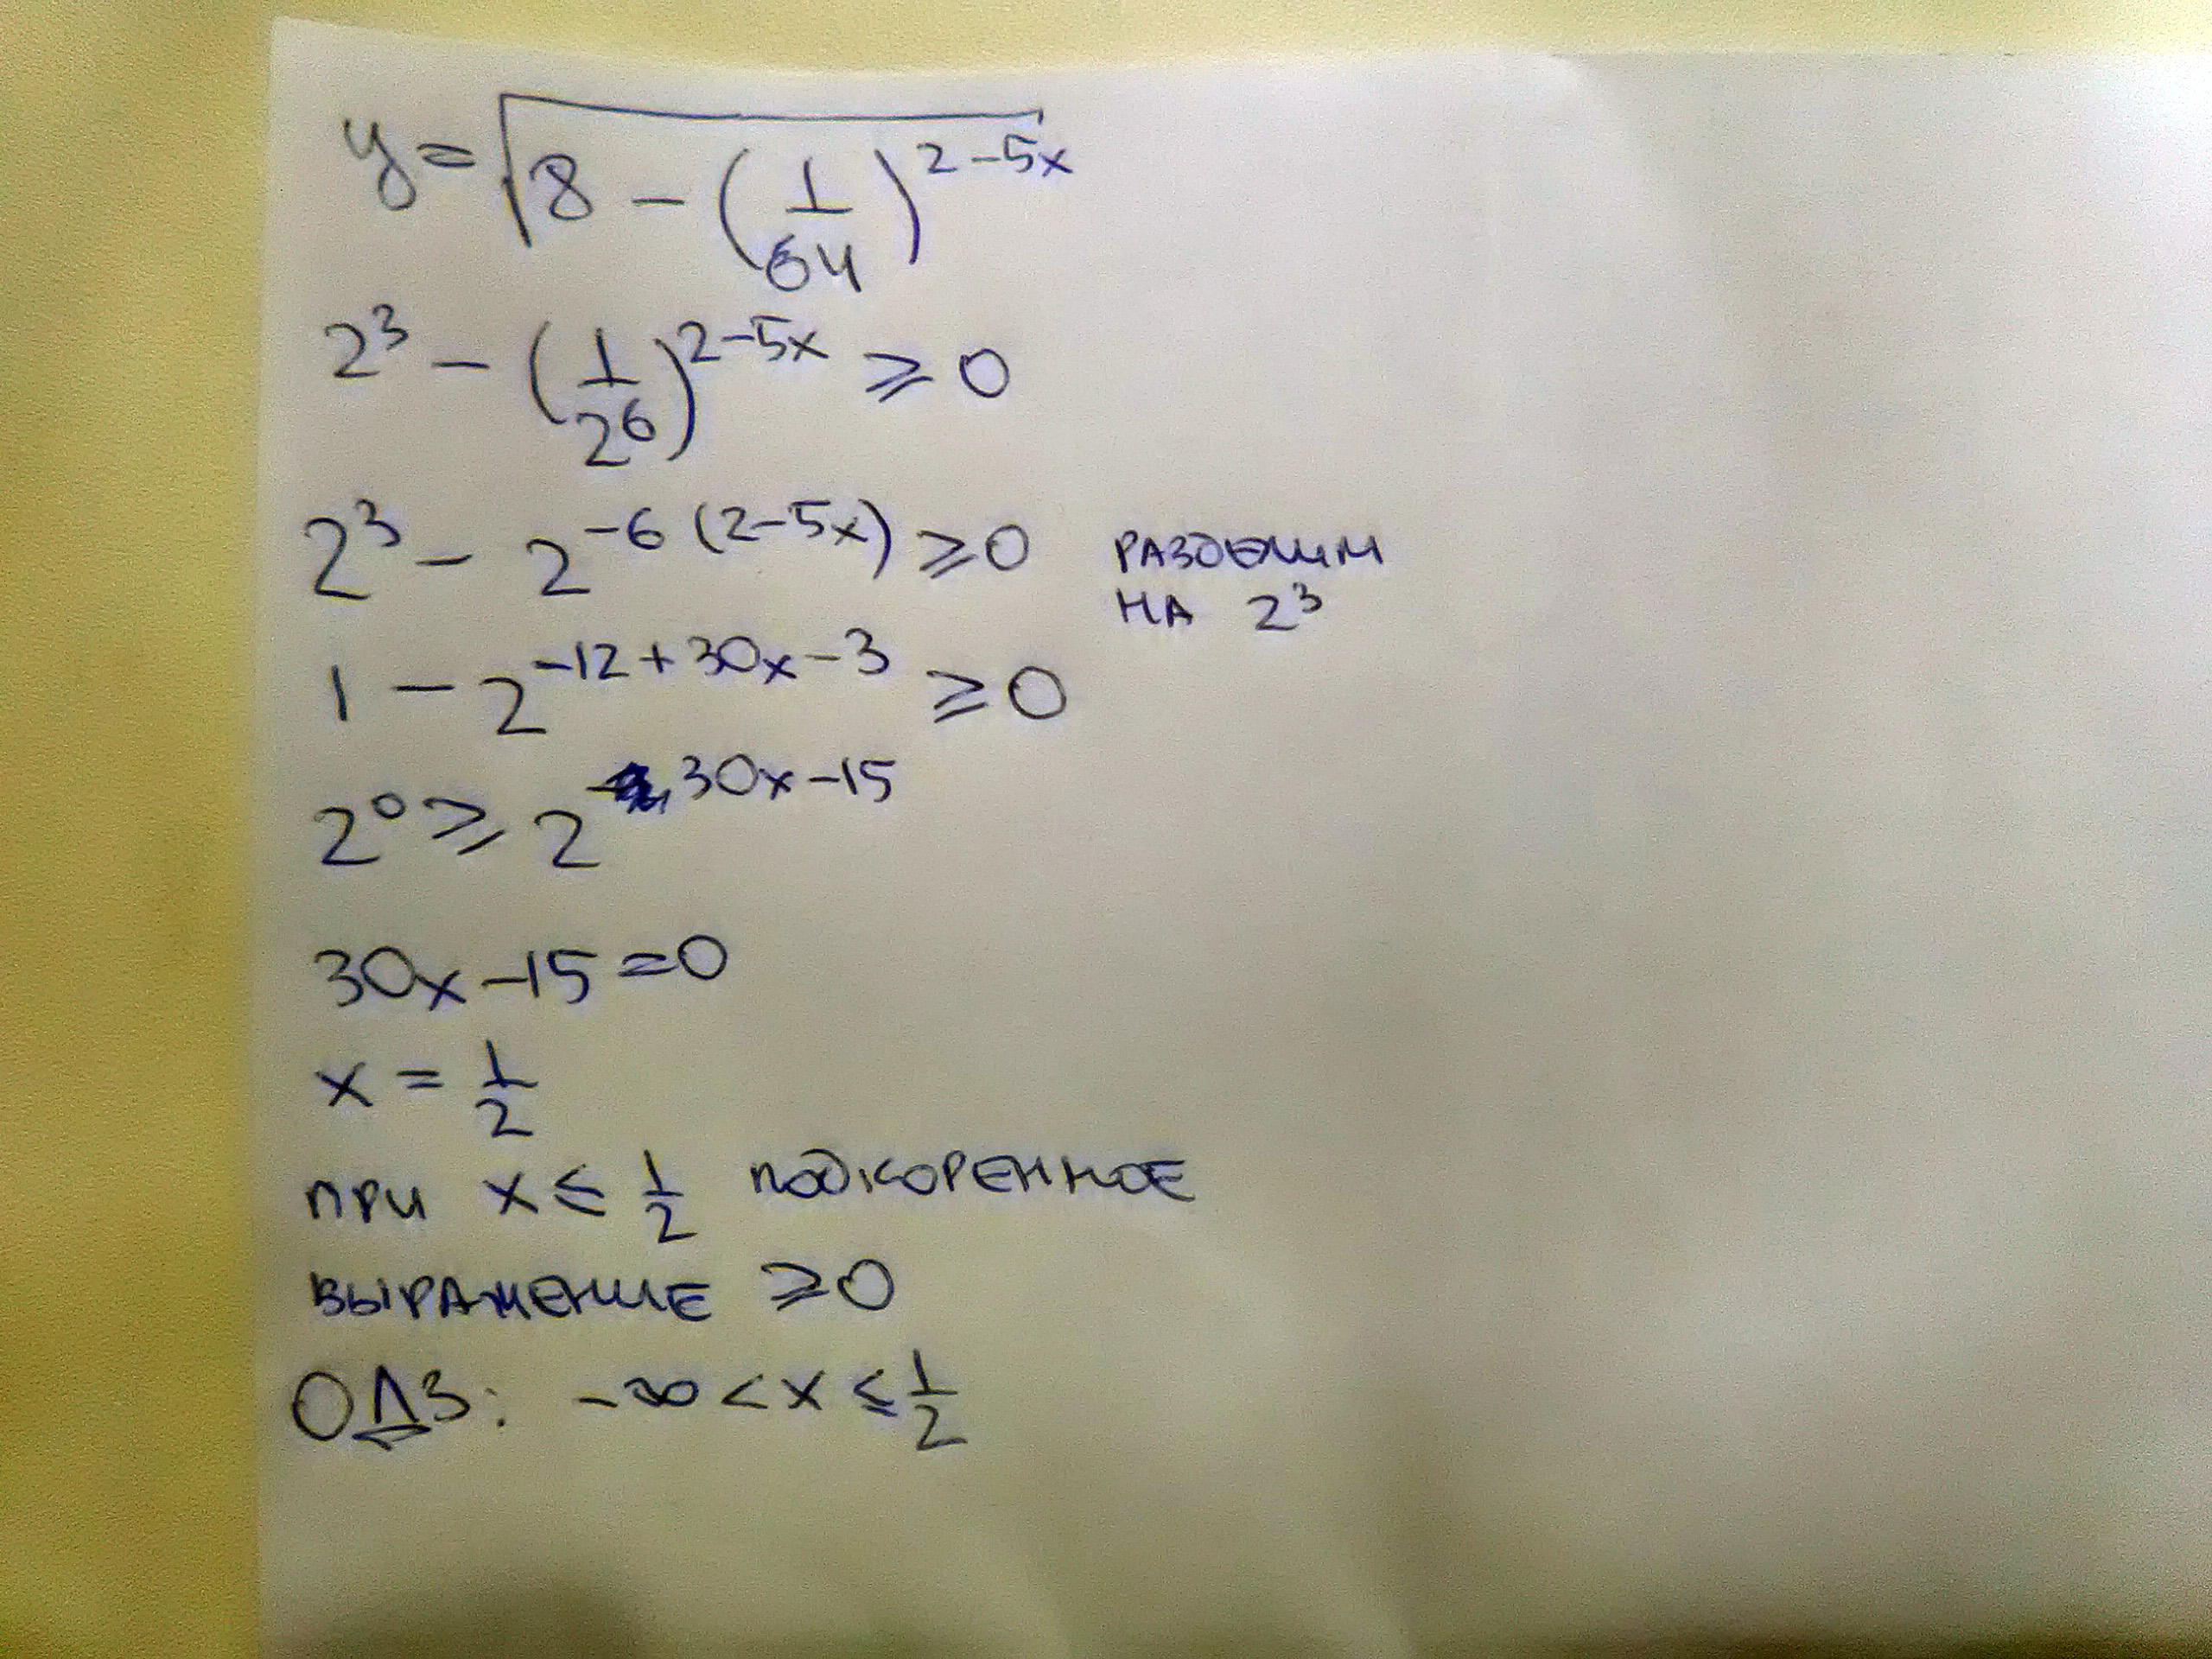 y = √(8 − (1/64)^(2−5x))
2³ − (1/2⁶)^(2−5x) ⩾ 0
2³ − 2^(−6(2−5x)) ⩾ 0 РАЗДЕЛИМ
НА 2³
1 − 2^(−12+30x−3) ⩾ 0
2⁰ ⩾ 2^(30x−15)
30x − 15 = 0
x = 1/2
ПРИ x ⩽ 1/2 ПОДКОРЕННОЕ
ВЫРАЖЕНИЕ ⩾ 0
ОДЗ: −∞ < x ⩽ 1/2